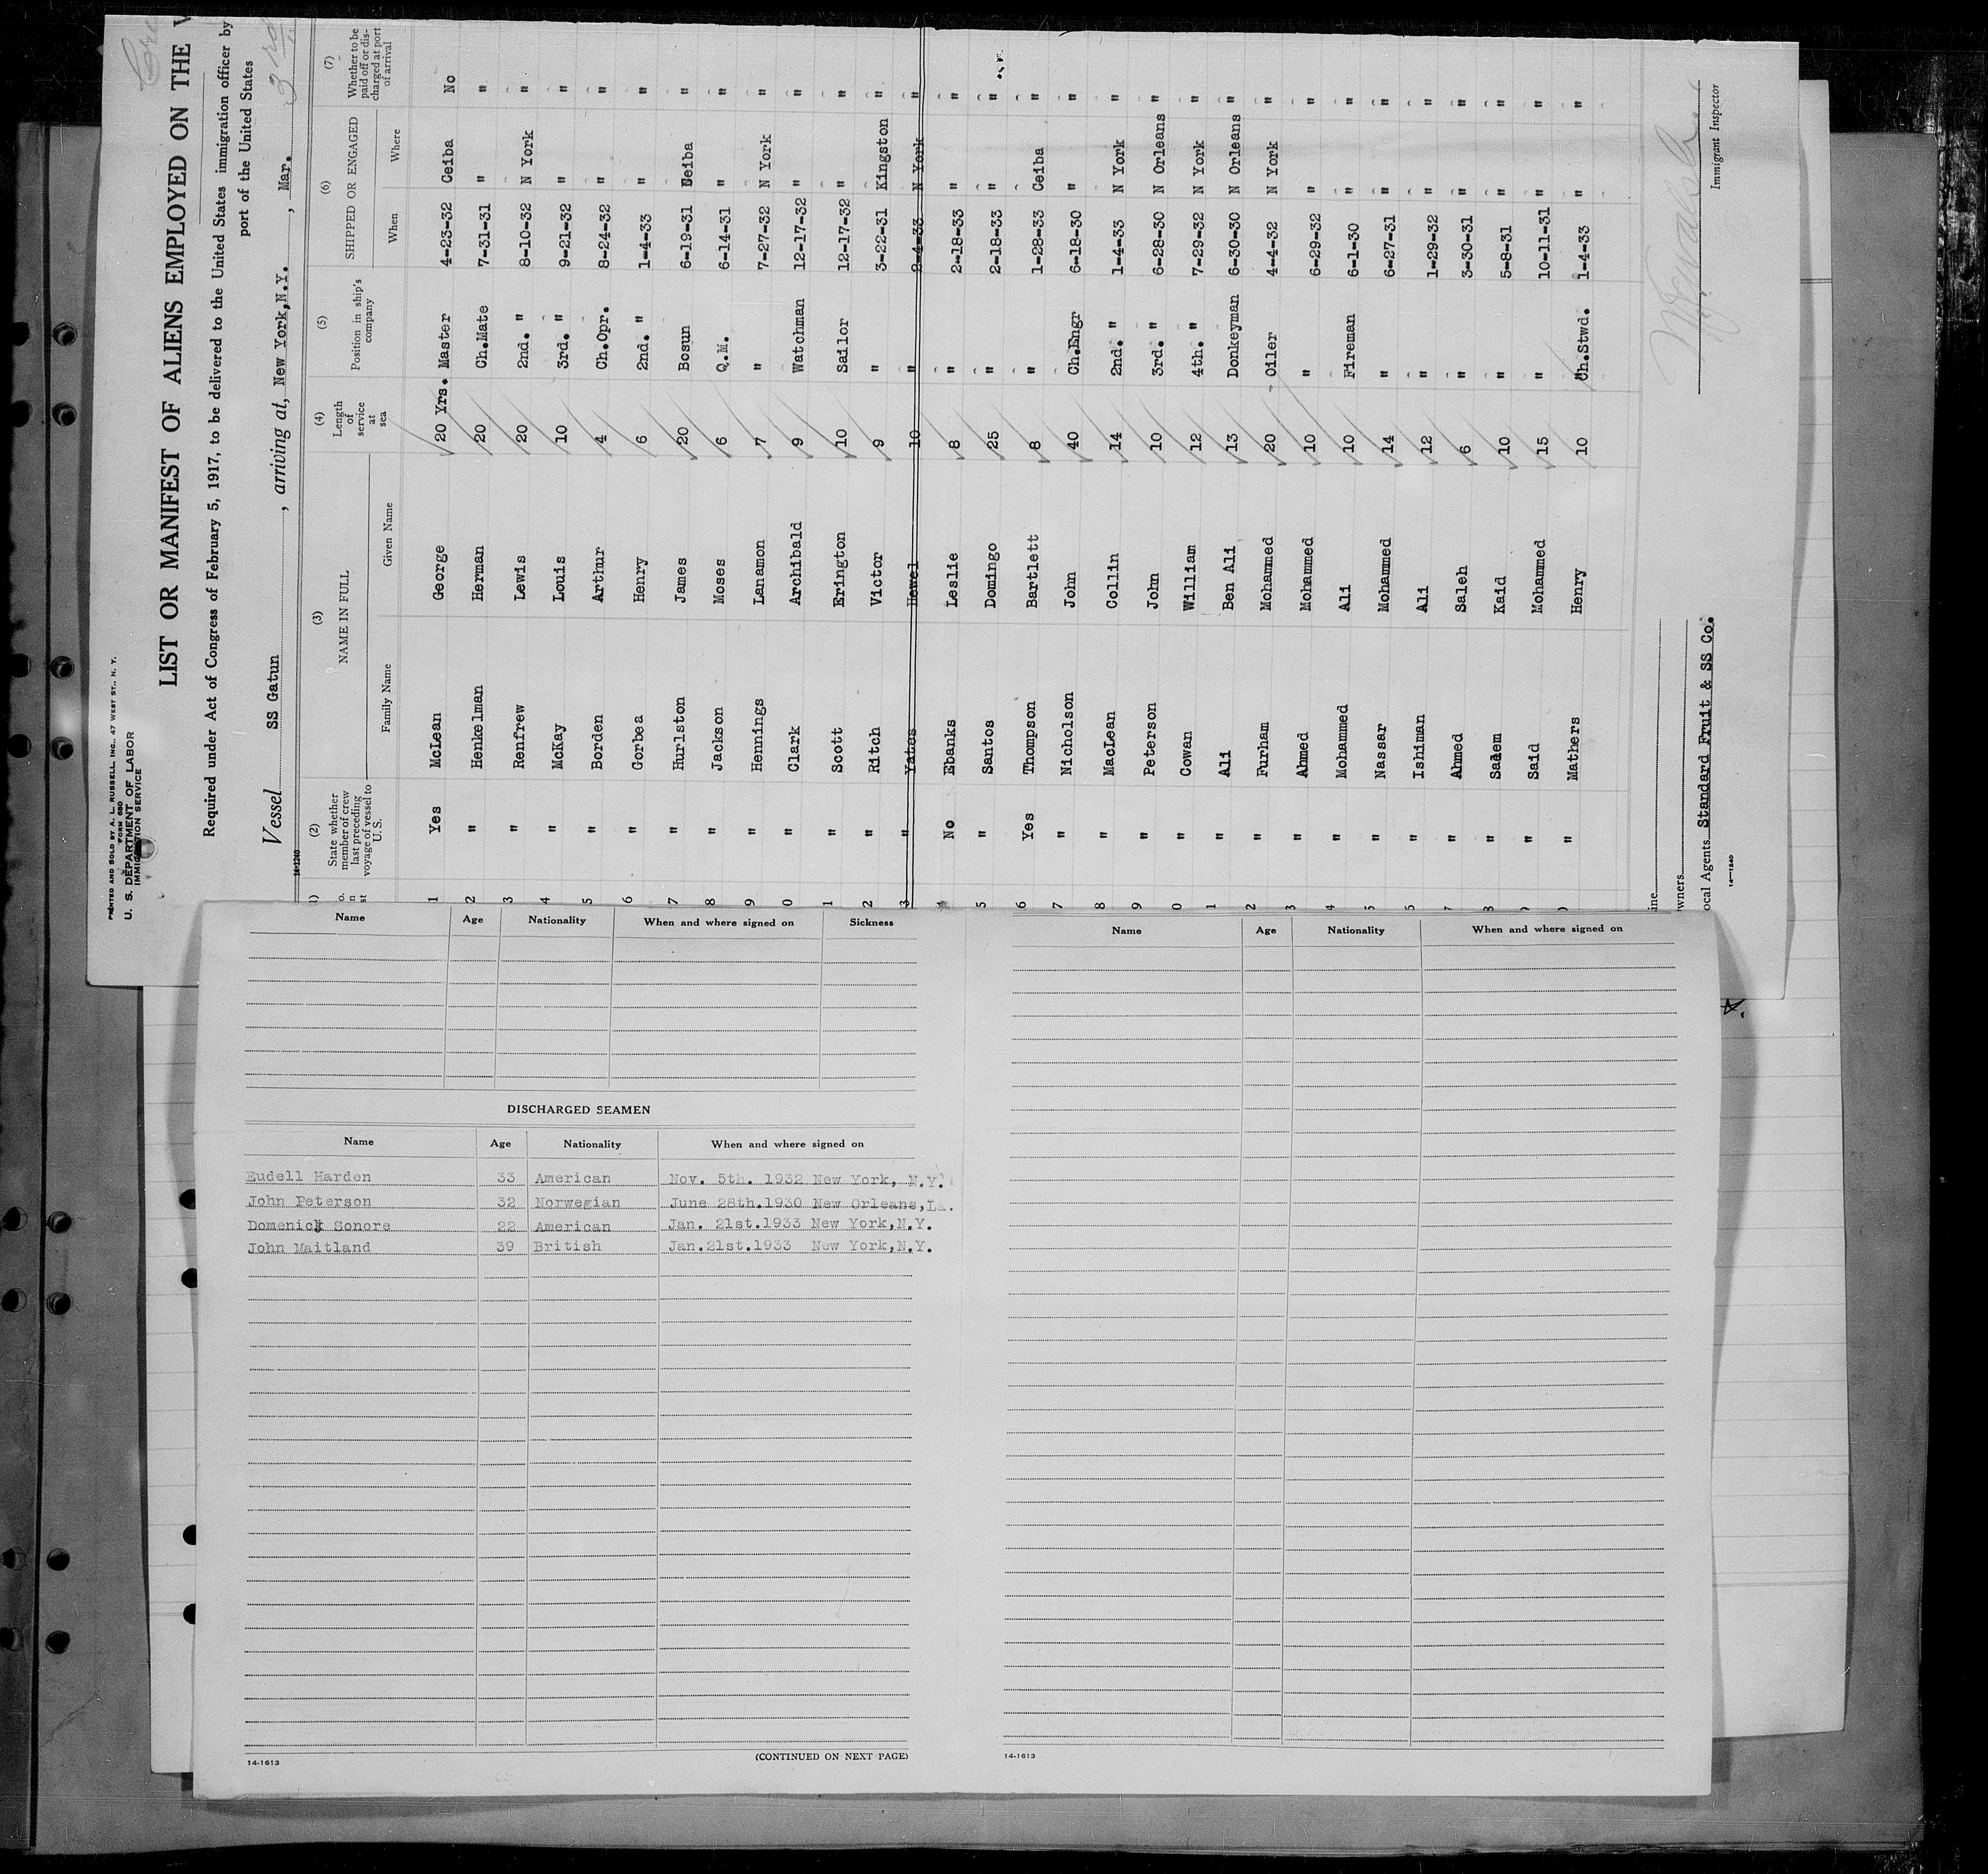 PRINTED AND SOLD BY A. L. RUSSELL, INC., 47 WEST ST., N. Y.
FORM 680
U. S. DEPARTMENT OF LABOR
IMMIGRATION SERVICE
LIST OR MANIFEST OF ALIENS EMPLOYED ON THE
Required under Act of Congress of February 5, 1917, to be delivered to the United States immigration officer by
port of the United States
Vessel SS Gatun, arriving at, New York,N.Y., Mar. 3rd
14-1240
(2) (3) (4) (5) (6) (7)
State whether member of crew last preceding voyage of vessel to U. S. NAME IN FULL Length of service at sea Position in ship's company SHIPPED OR ENGAGED Whether to be paid off or discharged at port of arrival
Family Name Given Name When Where
1 Yes McLean George 20 Yrs. Master 4-23-32 Ceiba No
2 " Henkelman Herman 20 Ch.Mate 7-31-31 " "
3 " Renfrew Lewis 20 2nd. " 8-10-32 N York "
4 " McKay Louis 10 3rd. " 9-21-32 " "
5 " Borden Arthur 4 Ch.Opr. 8-24-32 " "
6 " Gorbea Henry 6 2nd. " 1-4-33 " "
7 " Hurlston James 20 Bosun 6-19-31 Ceiba "
8 " Jackson Moses 6 Q.M. 6-14-31 " "
9 " Hennings Lanamon 7 " 7-27-32 N York "
0 " Clark Archibald 9 Watchman 12-17-32 " "
1 " Scott Erington 10 Sailor 12-17-32 " "
2 " Ritch Victor 9 " 3-22-31 Kingston "
3 " Yates Hewel 10 " 2-4-33 N York "
4 No Ebanks Leslie 8 " 2-18-33 " "
5 " Santos Domingo 25 " 2-18-33 " "
6 Yes Thompson Bartlett 8 " 1-28-33 Ceiba "
7 " Nicholson John 40 Ch.Engr 6-18-30 " "
8 " MacLean Collin 14 2nd. " 1-4-33 N York "
9 " Peterson John 10 3rd. " 6-28-30 N Orleans "
0 " Cowan William 12 4th. " 7-29-32 N York "
1 " Ali Ben Ali 13 Donkeyman 6-30-30 N Orleans "
2 " Furham Mohammed 20 Oiler 4-4-32 N York "
3 " Ahmed Mohammed 10 " 6-29-32 " "
4 " Mohammed Ali 10 Fireman 6-1-30 " "
5 " Nassar Mohammed 14 " 6-27-31 " "
6 " Ishiman Ali 12 " 1-29-32 " "
7 " Ahmed Saleh 6 " 3-30-31 " "
8 " Salem Kaid 10 " 5-8-31 " "
9 " Said Mohammed 15 " 10-11-31 " "
" Mathers Henry 10 Ch.Stwd. 1-4-33 " "
ine
wners
ocal Agents Standard Fruit & SS Co.
Immigrant Inspector
14-1240
Name Age Nationality When and where signed on Sickness
DISCHARGED SEAMEN
Name Age Nationality When and where signed on
Eudell Harden 33 American Nov. 5th. 1932 New York, N.Y.
John Peterson 32 Norwegian June 28th.1930 New Orleans,La.
Domenick Sonore 22 American Jan. 21st.1933 New York,N.Y.
John Maitland 39 British Jan.21st.1933 New York,N.Y.
14-1613 (CONTINUED ON NEXT PAGE)
Name Age Nationality When and where signed on
14-1613